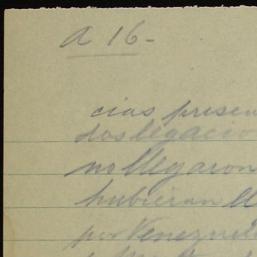 a 16-
cias presen
dos legacio
no llegaron
hubieran ll
por Venezuel